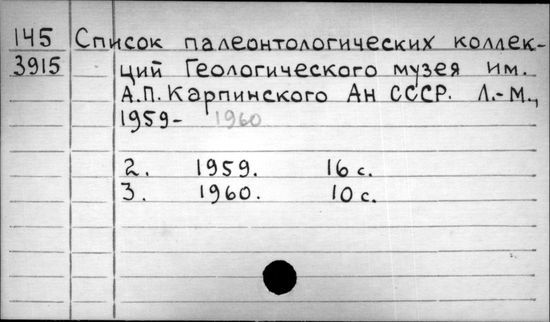 145 Список палеонтологических коллек-
3915 ций Геологического музея им.
А.П. Карпинского Ан СССР. Л.-М.,
1959- 1960
2. 1959. 16 с.
3. 1960. 10 с.